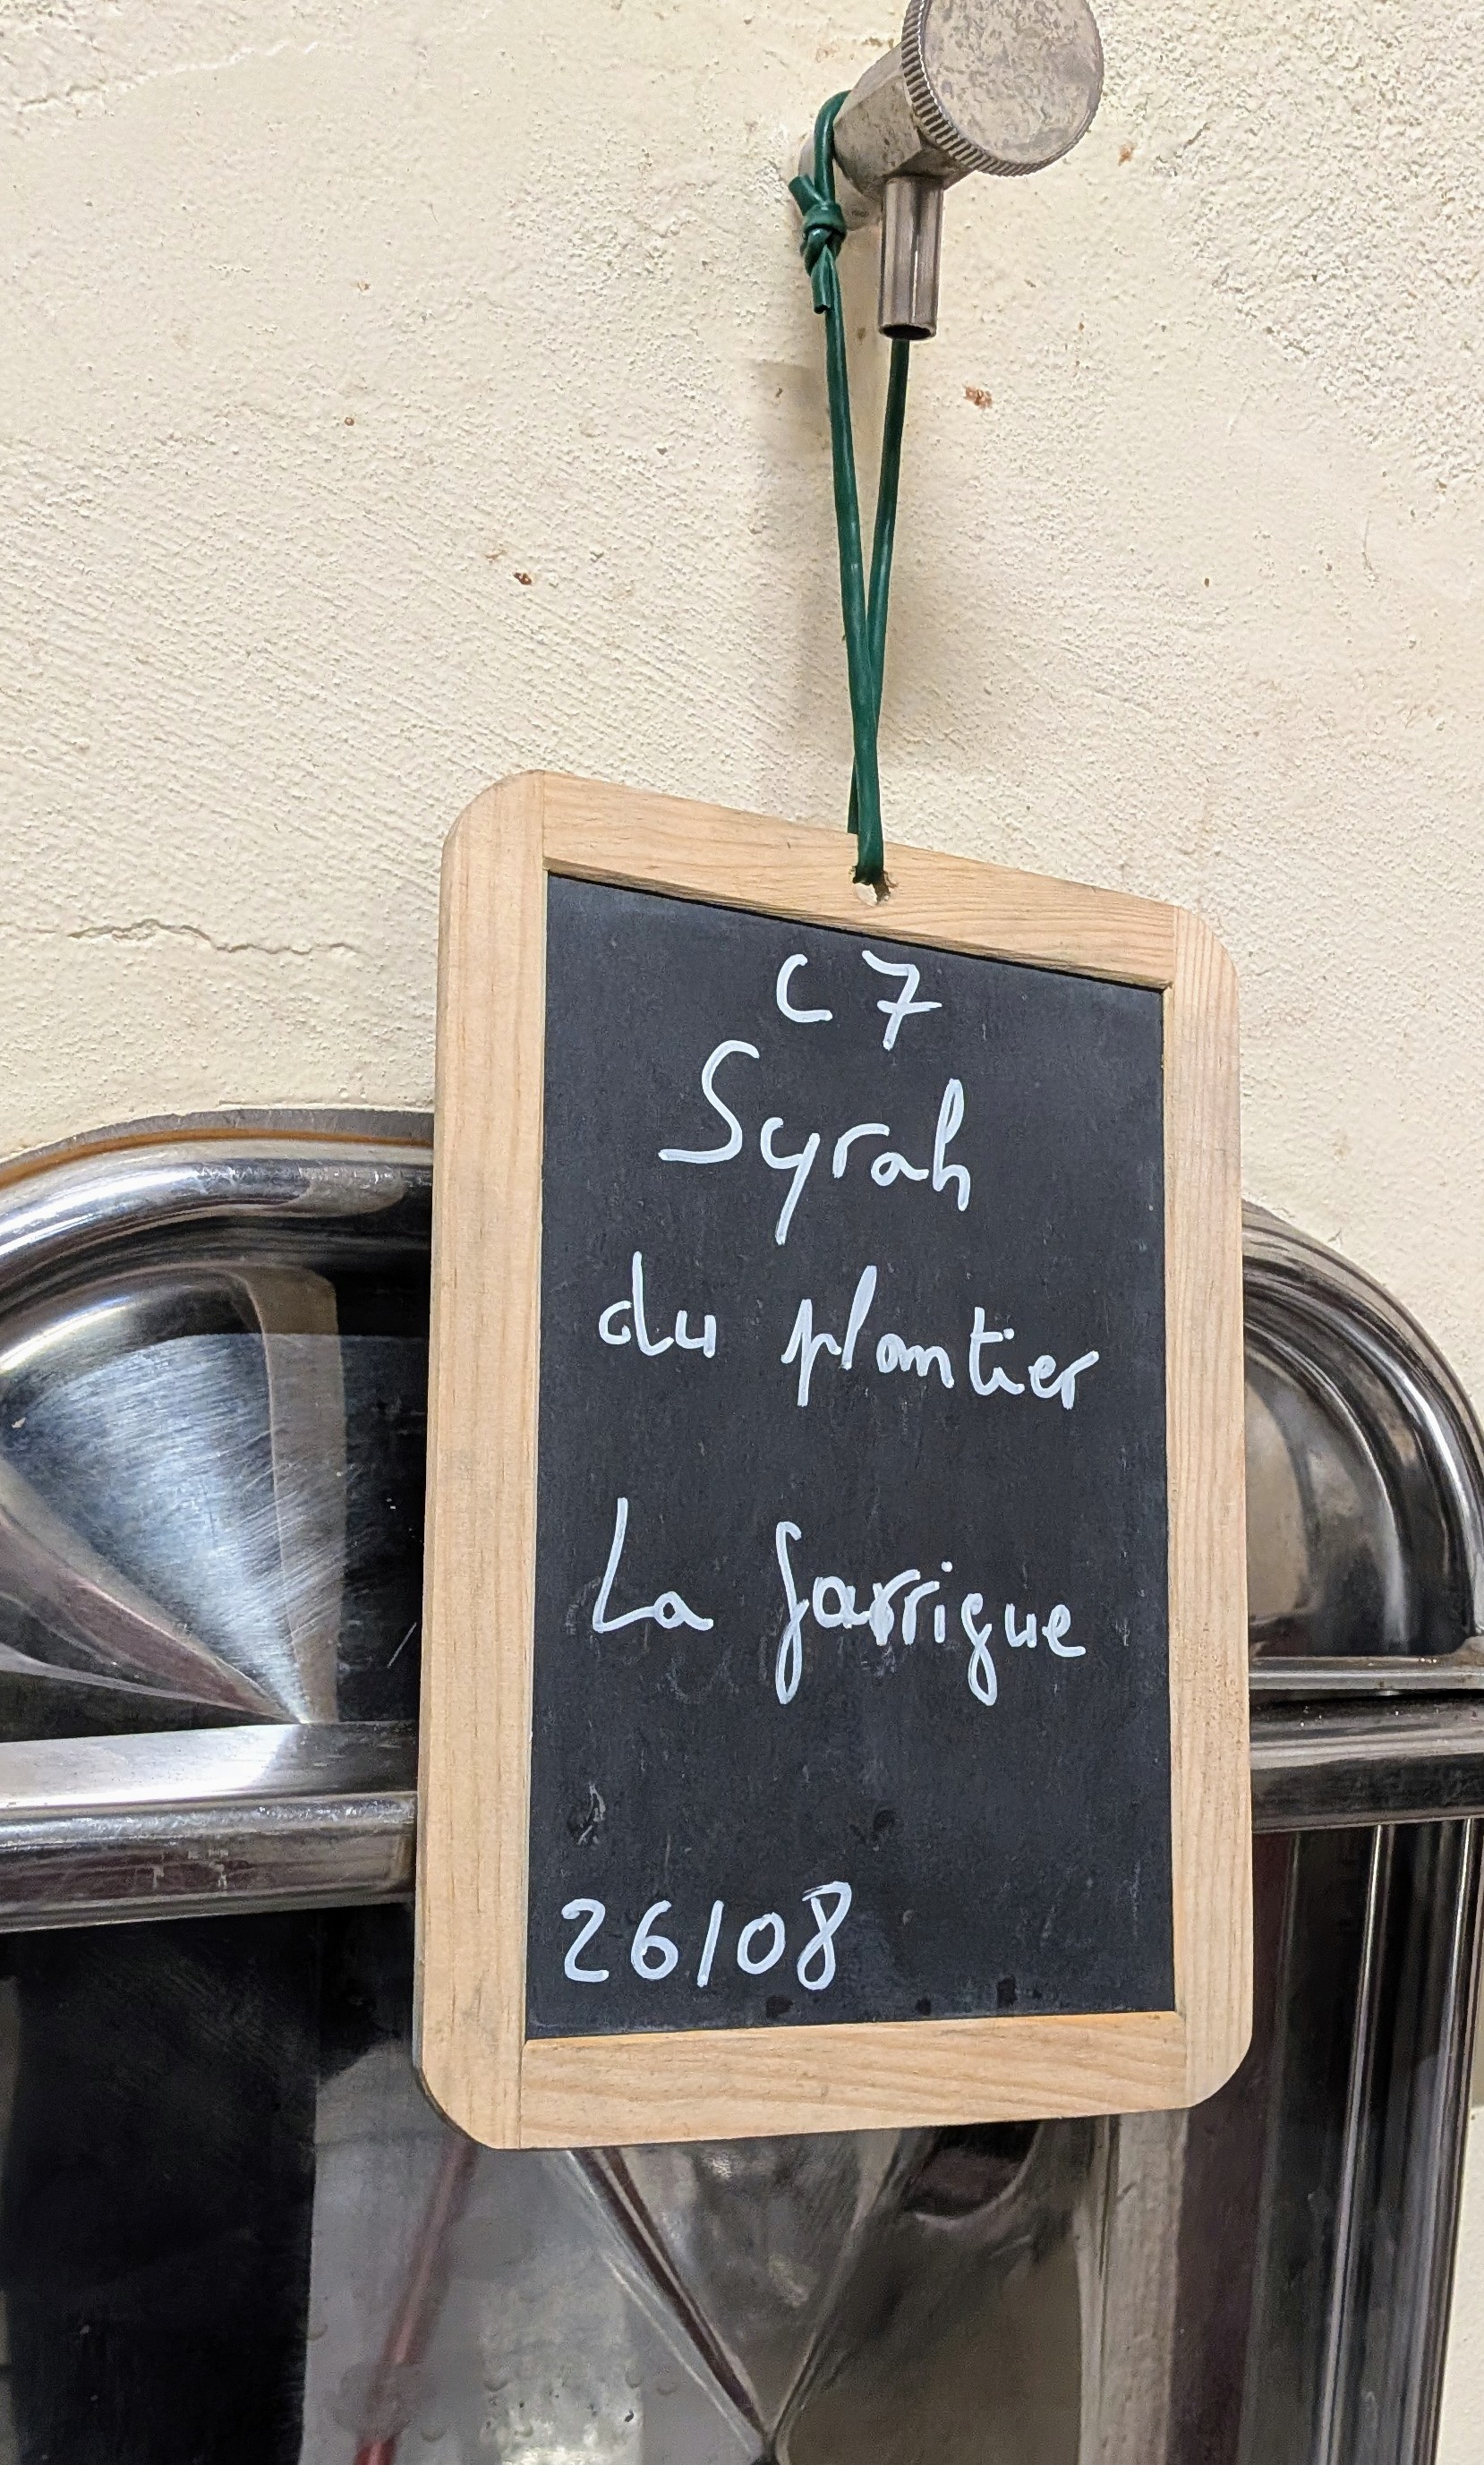 C7
Syrah
du plantier
La garrigue
26/08